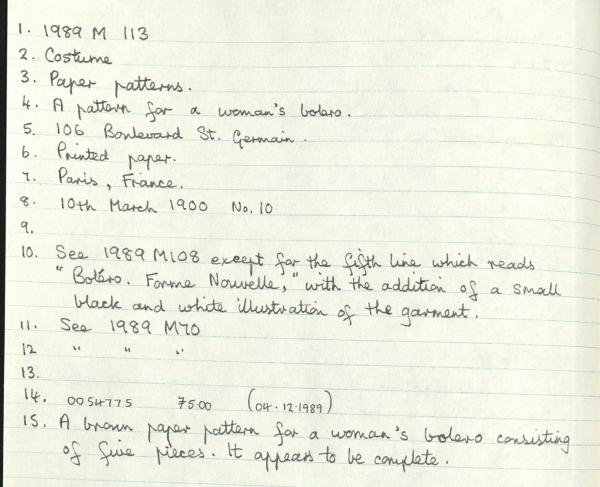 1. 1989 M 113
2. Costume
3. Paper patterns.
4. A pattern for a woman's bolero.
5. 106 Boulevard St. Germain.
6. Printed paper.
7. Paris, France.
8. 10th March 1900 No. 10
9.
10. See 1989 M108 except for the fifth line which reads
"Boléro. Forme Nouvelle," with the addition of a small
black and white illustration of the garment.
11. See 1989 M70
12 " " "
13.
14. 0054775 75.00 (04.12.1989)
15. A brown paper pattern for a woman's bolero consisting
of five pieces. It appears to be complete.